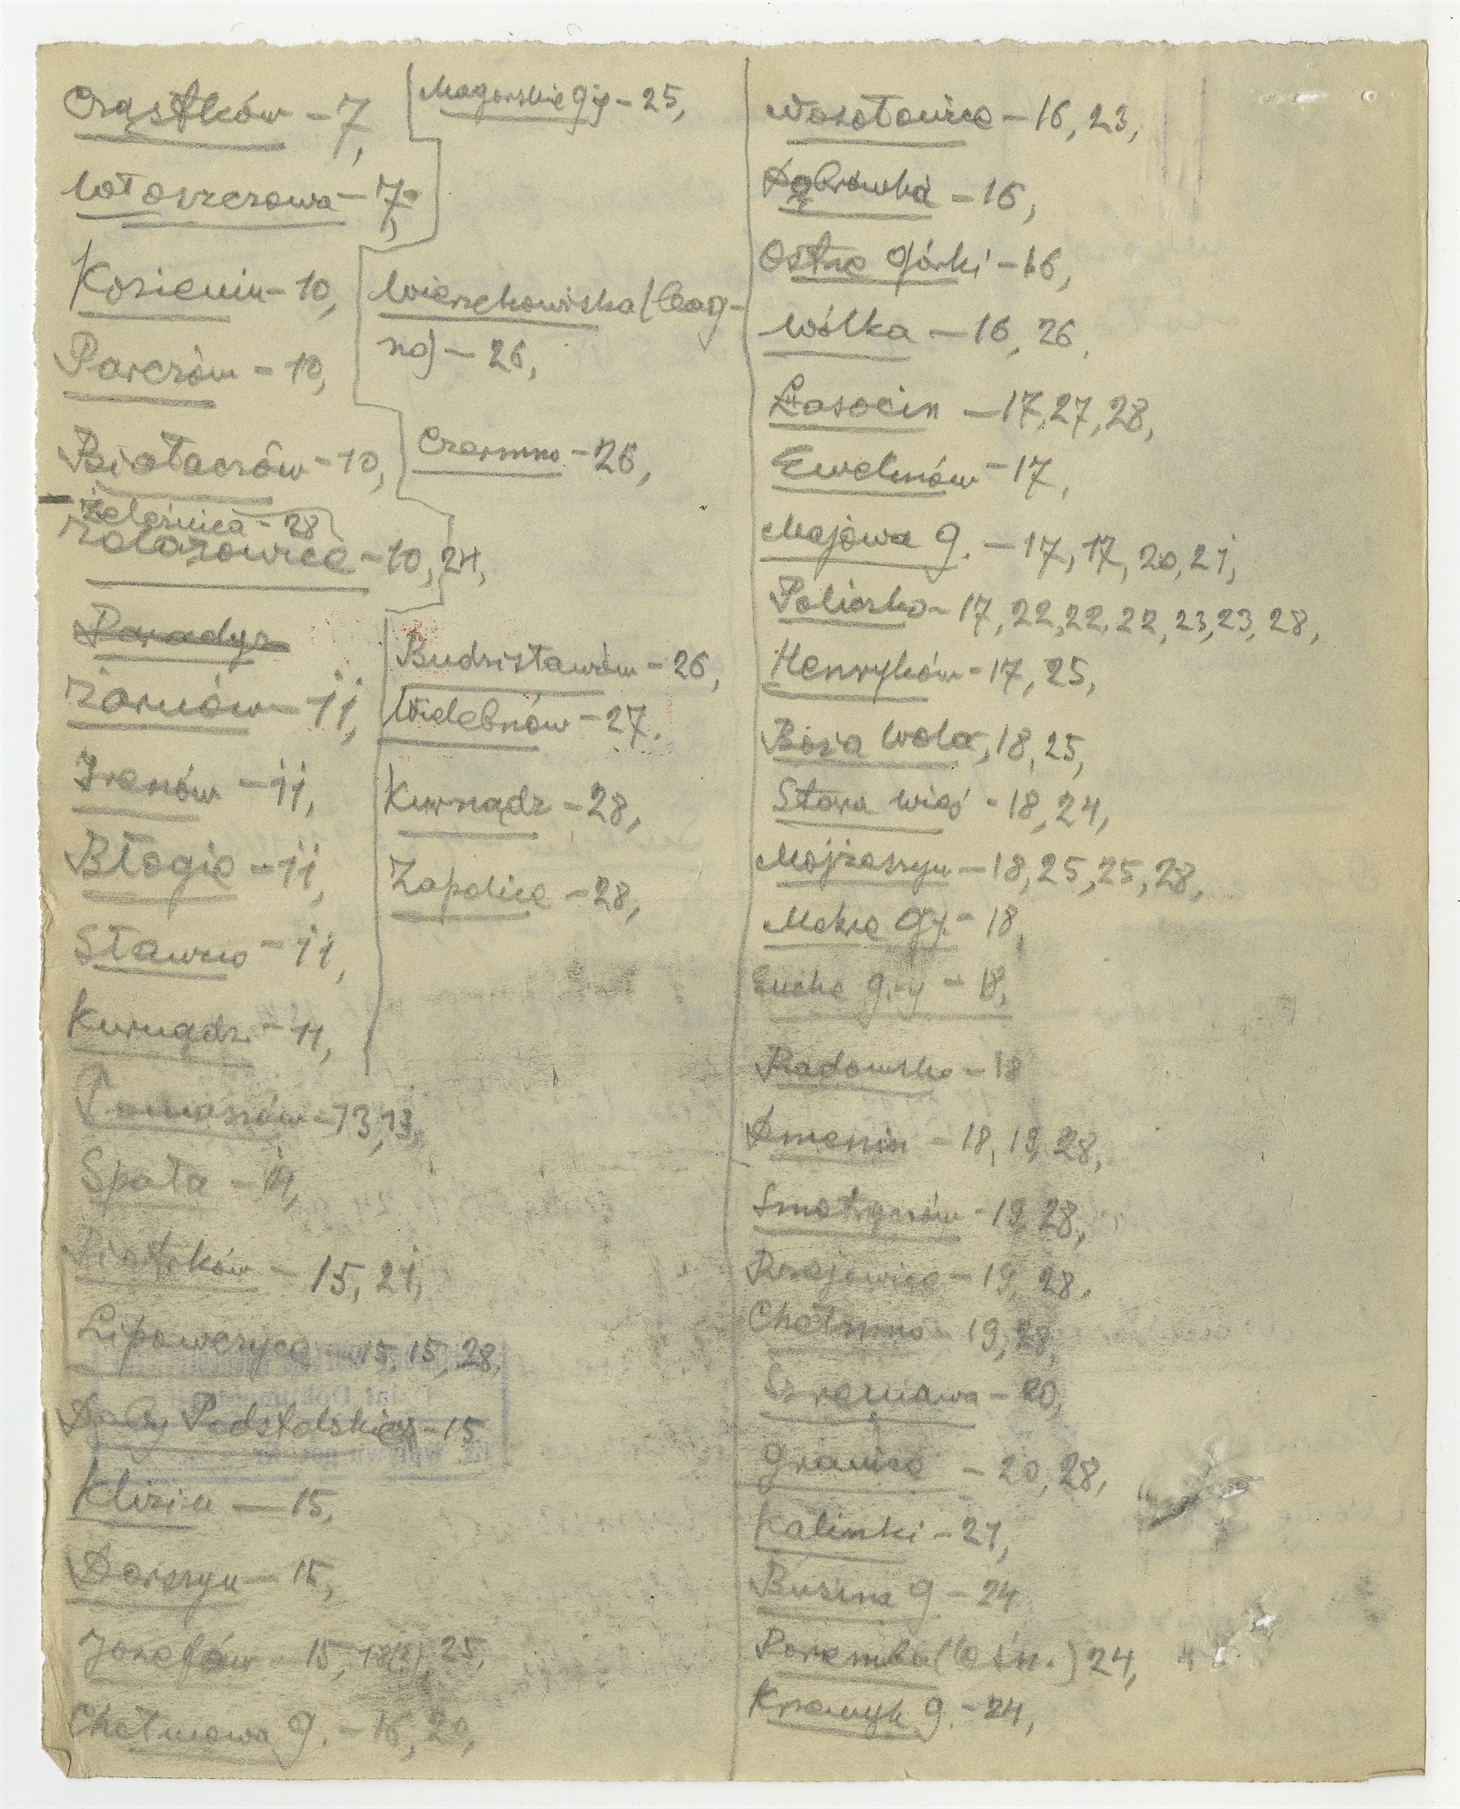 Cząstków - 7,
Włoszczowa - 7,
Kozienin - 10,
Parczów - 10,
Białaczów - 10,
Żeleźnica - 28
Żelazowice - 10, 24,
Paradyż
Żarnów - 11,
Irenów - 11,
Błogie - 11,
Sławno - 11,
Kurnądz - 11,
Tomaszów - 13, 13,
Spała - 14,
Piotrków - 15, 21,
Lipowczyce - 15, 15, 28,
Dęby Podstolskie - 15
Klizin - 15,
Dorszyn - 15,
Józefów - 15, 18(2), 25,
Chełmowa g. - 16, 20,
Magorskie g-y - 25,
Wierzchowiska (bag-
no) - 26,
Czermno - 26,
Budzisławów - 26,
Widebnów - 27.
Kurnądz - 28,
Zapolice - 28,
Wosołowice - 16, 23,
Dąbrówka - 16,
Ostre Górki - 16,
Wólka - 16, 26,
Łasocin - 17, 27, 28,
Ewelinów - 17,
Majowa g. - 17, 17, 20, 21,
Policzko - 17, 22, 22, 22, 23, 23, 28,
Henryków - 17, 25,
Boża Wola, 18, 25,
Stara Wieś - 18, 24,
Mojżeszyn - 18, 25, 25, 28,
Mokre g-y. - 18,
Suche g.-y - 18,
Radomsko - 18
Dmenin - 18, 19, 28,
Smotryszów - 19, 28,
Rzejowice - 19, 28,
Chełmno 19, 28,
Szreniawa - 20,
Granice - 20, 28,
Kalinki - 21,
Buzina g - 24
Poremba (leśn.) 24,
Krzemyk g. - 24,